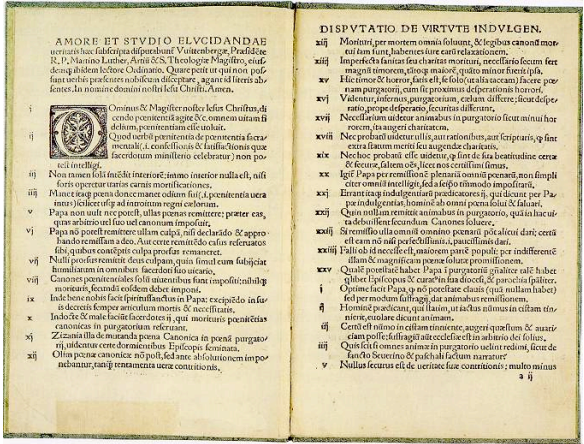 AMORE ET STVDIO ELVCIDANDAE
ueritatis hæc subscripta disputabunť Vuittenbergæ, Præsidēte
R. P. Martino Luther, Artiū & S. Theologiæ Magistro, eius-
demq; ibidem lectore Ordinario. Quare petit ut qui non pos-
sunt uerbis præsentes nobiscum disceptare, agant id literis ab-
sentes. In nomine domini nostri Iesu Christi. Amen.
i Ominus & Magister noster Iesus Christus, di-
cendo pœnitentiā agite &c. omnem uitam fi-
delium, pœnitentiam esse uoluit.
ij Quod uerbū pœnitentia de pœnitentia sacra-
mentali (.i. confessionis & satisfactionis quæ
sacerdotum ministerio celebratur) non po-
test intelligi.
iij Non tamen solā intēdit interiorē: immo interior nulla est, nisi
foris operetur uarias carnis mortificationes.
iiij Manet itaq; pœna donec manet odium sui (.i. pœnitentia uera
intus) scilicet usq; ad introitum regni cælorum.
v Papa non uult nec potest, ullas pœnas remittere: præter eas,
quas arbitrio uel suo uel canonum imposuit.
vj Papa nō potest remittere ullam culpā, nisi declarādo & appro-
bando remissam a deo. Aut certe remittēdo casus reseruatos
sibi, quibus contēptis culpa prorsus remaneret.
vij Nulli prorsus remittit deus culpam, quin simul eum subijciat
humiliatum in omnibus sacerdoti suo uicario.
viij Canones pœnitentiales solū uiuentibus sunt impositi: nihilq;
morituris, secundū eosdem debet imponi.
ix Inde bene nobis facit spiritussanctus in Papa: excipiēdo in su-
is decretis semper articulum mortis & necessitatis.
x Indocte & male faciūt sacerdotes ij, qui morituris pœnitētias
canonicas in purgatorium reseruant.
xj Zizania illa de mutanda pœna Canonica in pœnā purgato-
rij, uidentur certe dormientibus Episcopis seminata.
xij Olim pœnæ canonicæ nō post, sed ante absolutionem impo-
nebantur, tanq̃ tentamenta ueræ contritionis.
DISPVTATIO DE VIRTVTE INDVLGEN.
xiij Morituri, per mortem omnia soluunt, & legibus canonū mor-
tui iam sunt, habentes iure earū relaxationem.
xiiij Imperfecta sanitas seu charitas morituri, necessario secum fert
magnū timorem, tātoq; maiorē, quāto minor fuerit ipsa.
xv Hic timor & horror, satis est, se solo (ut alia taceam) facere pœ-
nam purgatorij, cum sit proximus desperationis horrori.
xvj Videntur, infernus, purgatorium, cælum differre: sicut despe-
ratio, prope desperatio, securitas differunt.
xvij Necessarium uidetur animabus in purgatorio sicut minui hor-
rorem, ita augeri charitatem.
xviij Nec probatū uidetur ullis, aut rationibus, aut scripturis, q̃ sint
extra statum meriti seu augendæ charitatis.
xix Nec hoc probatū esse uidetur, q̃ sint de sua beatitudine certæ
& securæ, saltem oēs, licet nos certissimi simus.
xx Igiť Papa per remissionē plenariā omniū pœnarū, non simpli-
citer omniū intelligit, sed a seipso tm̄modo impositarū.
xxj Errant itaq; indulgentiarū prædicatores ij, qui dicunt per Pa-
pæ indulgentias, hominē ab omni pœna solui & saluari.
xxij Quin nullam remittit animabus in purgatorio, quā in hac ui-
ta debuissent secundum Canones soluere.
xxiij Si remissio ulla omniū omnino pœnarū pōt alicui dari; certū
est eam nō nisi perfectissimis .i. paucissimis dari.
xxiiij Falli ob id necesse est, maiorem partē populi: per indifferentē
illam & magnificam pœnæ solutæ promissionem.
xxv Qualē potestatē habet Papa ī purgatoriū gñaliter talē habet
quilibet Episcopus & curat9 in sua diocesi, & parochia spāliter.
j Optime facit Papa, q̃ nō potestate clauis (quā nullam habet)
sed per modum suffragij, dat animabus remissionem.
ij Hominē prædicant, qui statim, ut iactus nūmus in cistam tin-
nierit, euolare dicunt animam.
iij Certū est nūmo in cistam tinniente, augeri quæstum & auari-
ciam posse: suffragiū aūt ecclesiæ est in arbitrio dei solius.
iiij Quis scit si omnes animæ in purgatorio uelint redimi, sicut de
sancto Seuerino & paschali factum narratur.
v Nullus securus est de ueritate suæ contritionis; multo minus
a ij